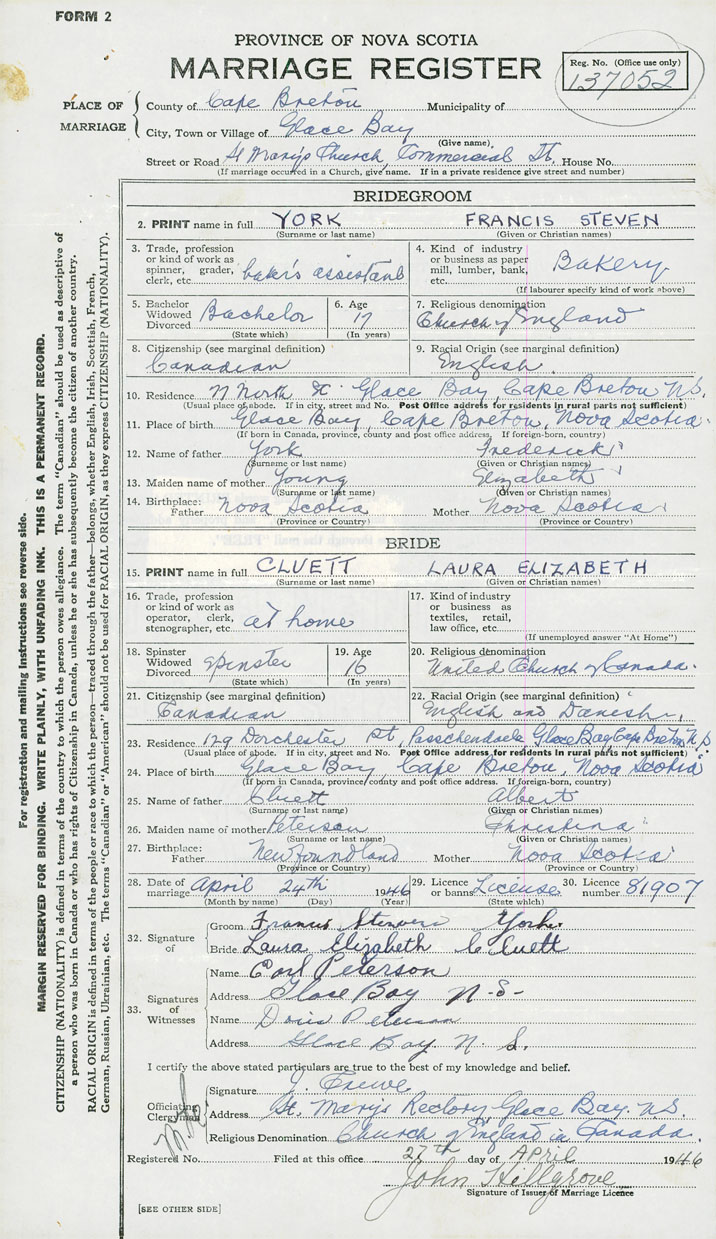 FORM 2
PROVINCE OF NOVA SCOTIA
MARRIAGE REGISTER
Reg. No. (Office use only)
137052
PLACE OF MARRIAGE
County of Cape Breton Municipality of
City, Town or Village of Glace Bay
(Give name)
Street or Road St Mary's Church, Commercial St. House No.
(If marriage occurred in a Church, give name. If in a private residence give street and number)
BRIDEGROOM
2. PRINT name in full YORK FRANCIS STEVEN
(Surname or last name) (Given or Christian names)
3. Trade, profession or kind of work as spinner, grader, clerk, etc. baker's assistant
4. Kind of industry or business as paper mill, lumber, bank, etc. Bakery
(If labourer specify kind of work above)
5. Bachelor Widowed Divorced Bachelor
(State which)
6. Age 17
(In years)
7. Religious denomination
Church of England
8. Citizenship (see marginal definition)
Canadian
9. Racial Origin (see marginal definition)
English
10. Residence North St. Glace Bay, Cape Breton N.S.
(Usual place of abode. If in city, street and No. Post Office address for residents in rural parts not sufficient)
11. Place of birth Glace Bay, Cape Breton, Nova Scotia
(If born in Canada, province, county and post office address. If foreign-born, country)
12. Name of father York Frederick
(Surname or last name) (Given or Christian names)
13. Maiden name of mother Young Elizabeth
(Surname or last name) (Given or Christian names)
14. Birthplace: Father Nova Scotia Mother Nova Scotia
(Province or Country) (Province or Country)
BRIDE
15. PRINT name in full CLUETT LAURA ELIZABETH
(Surname or last name) (Given or Christian names)
16. Trade, profession or kind of work as operator, clerk, stenographer, etc. at home
17. Kind of industry or business as textiles, retail, law office, etc.
(If unemployed answer "At Home")
18. Spinster Widowed Divorced Spinster
(State which)
19. Age 16
(In years)
20. Religious denomination
United Church of Canada.
21. Citizenship (see marginal definition)
Canadian
22. Racial Origin (see marginal definition)
English and Danish
23. Residence 129 Dorchester St, Passchendaele Glace Bay, Cape Breton N.S.
(Usual place of abode. If in city, street and No. Post Office address for residents in rural parts not sufficient)
24. Place of birth Glace Bay, Cape Breton, Nova Scotia
(If born in Canada, province, county and post office address. If foreign-born, country)
25. Name of father Cluett Albert
(Surname or last name) (Given or Christian names)
26. Maiden name of mother Peterson Christina
(Surname or last name) (Given or Christian names)
27. Birthplace: Father Newfoundland Mother Nova Scotia
(Province or Country) (Province or Country)
28. Date of marriage April 24th 1946
(Month by name) (Day) (Year)
29. Licence or banns License
(State which)
30. Licence number 81907
32. Signature of
Groom Francis York
Bride Laura Elizabeth Cluett
33. Signatures of Witnesses
Name Earl Peterson
Address Glace Bay N-S-
Name Doris Peterson
Address Glace Bay N. S.
I certify the above stated particulars are true to the best of my knowledge and belief.
Officiating Clergyman
Signature
Address St. Mary's Rectory, Glace Bay. N.S.
Religious Denomination Church of England in Canada.
Registered No. Filed at this office 27th day of APRIL 1946
John Hillgrove
Signature of Issuer of Marriage Licence
[SEE OTHER SIDE]
For registration and mailing instructions see reverse side.
MARGIN RESERVED FOR BINDING. WRITE PLAINLY, WITH UNFADING INK. THIS IS A PERMANENT RECORD.
CITIZENSHIP (NATIONALITY) is defined in terms of the country to which the person owes allegiance. The term "Canadian" should be used as descriptive of
a person who was born in Canada or who has rights of Citizenship in Canada, unless he or she has subsequently become the citizen of another country.
RACIAL ORIGIN is defined in terms of the people or race to which the person—traced through the father—belongs, whether English, Irish, Scottish, French,
German, Russian, Ukrainian, etc. The terms "Canadian" or "American" should not be used for RACIAL ORIGIN, as they express CITIZENSHIP (NATIONALITY).